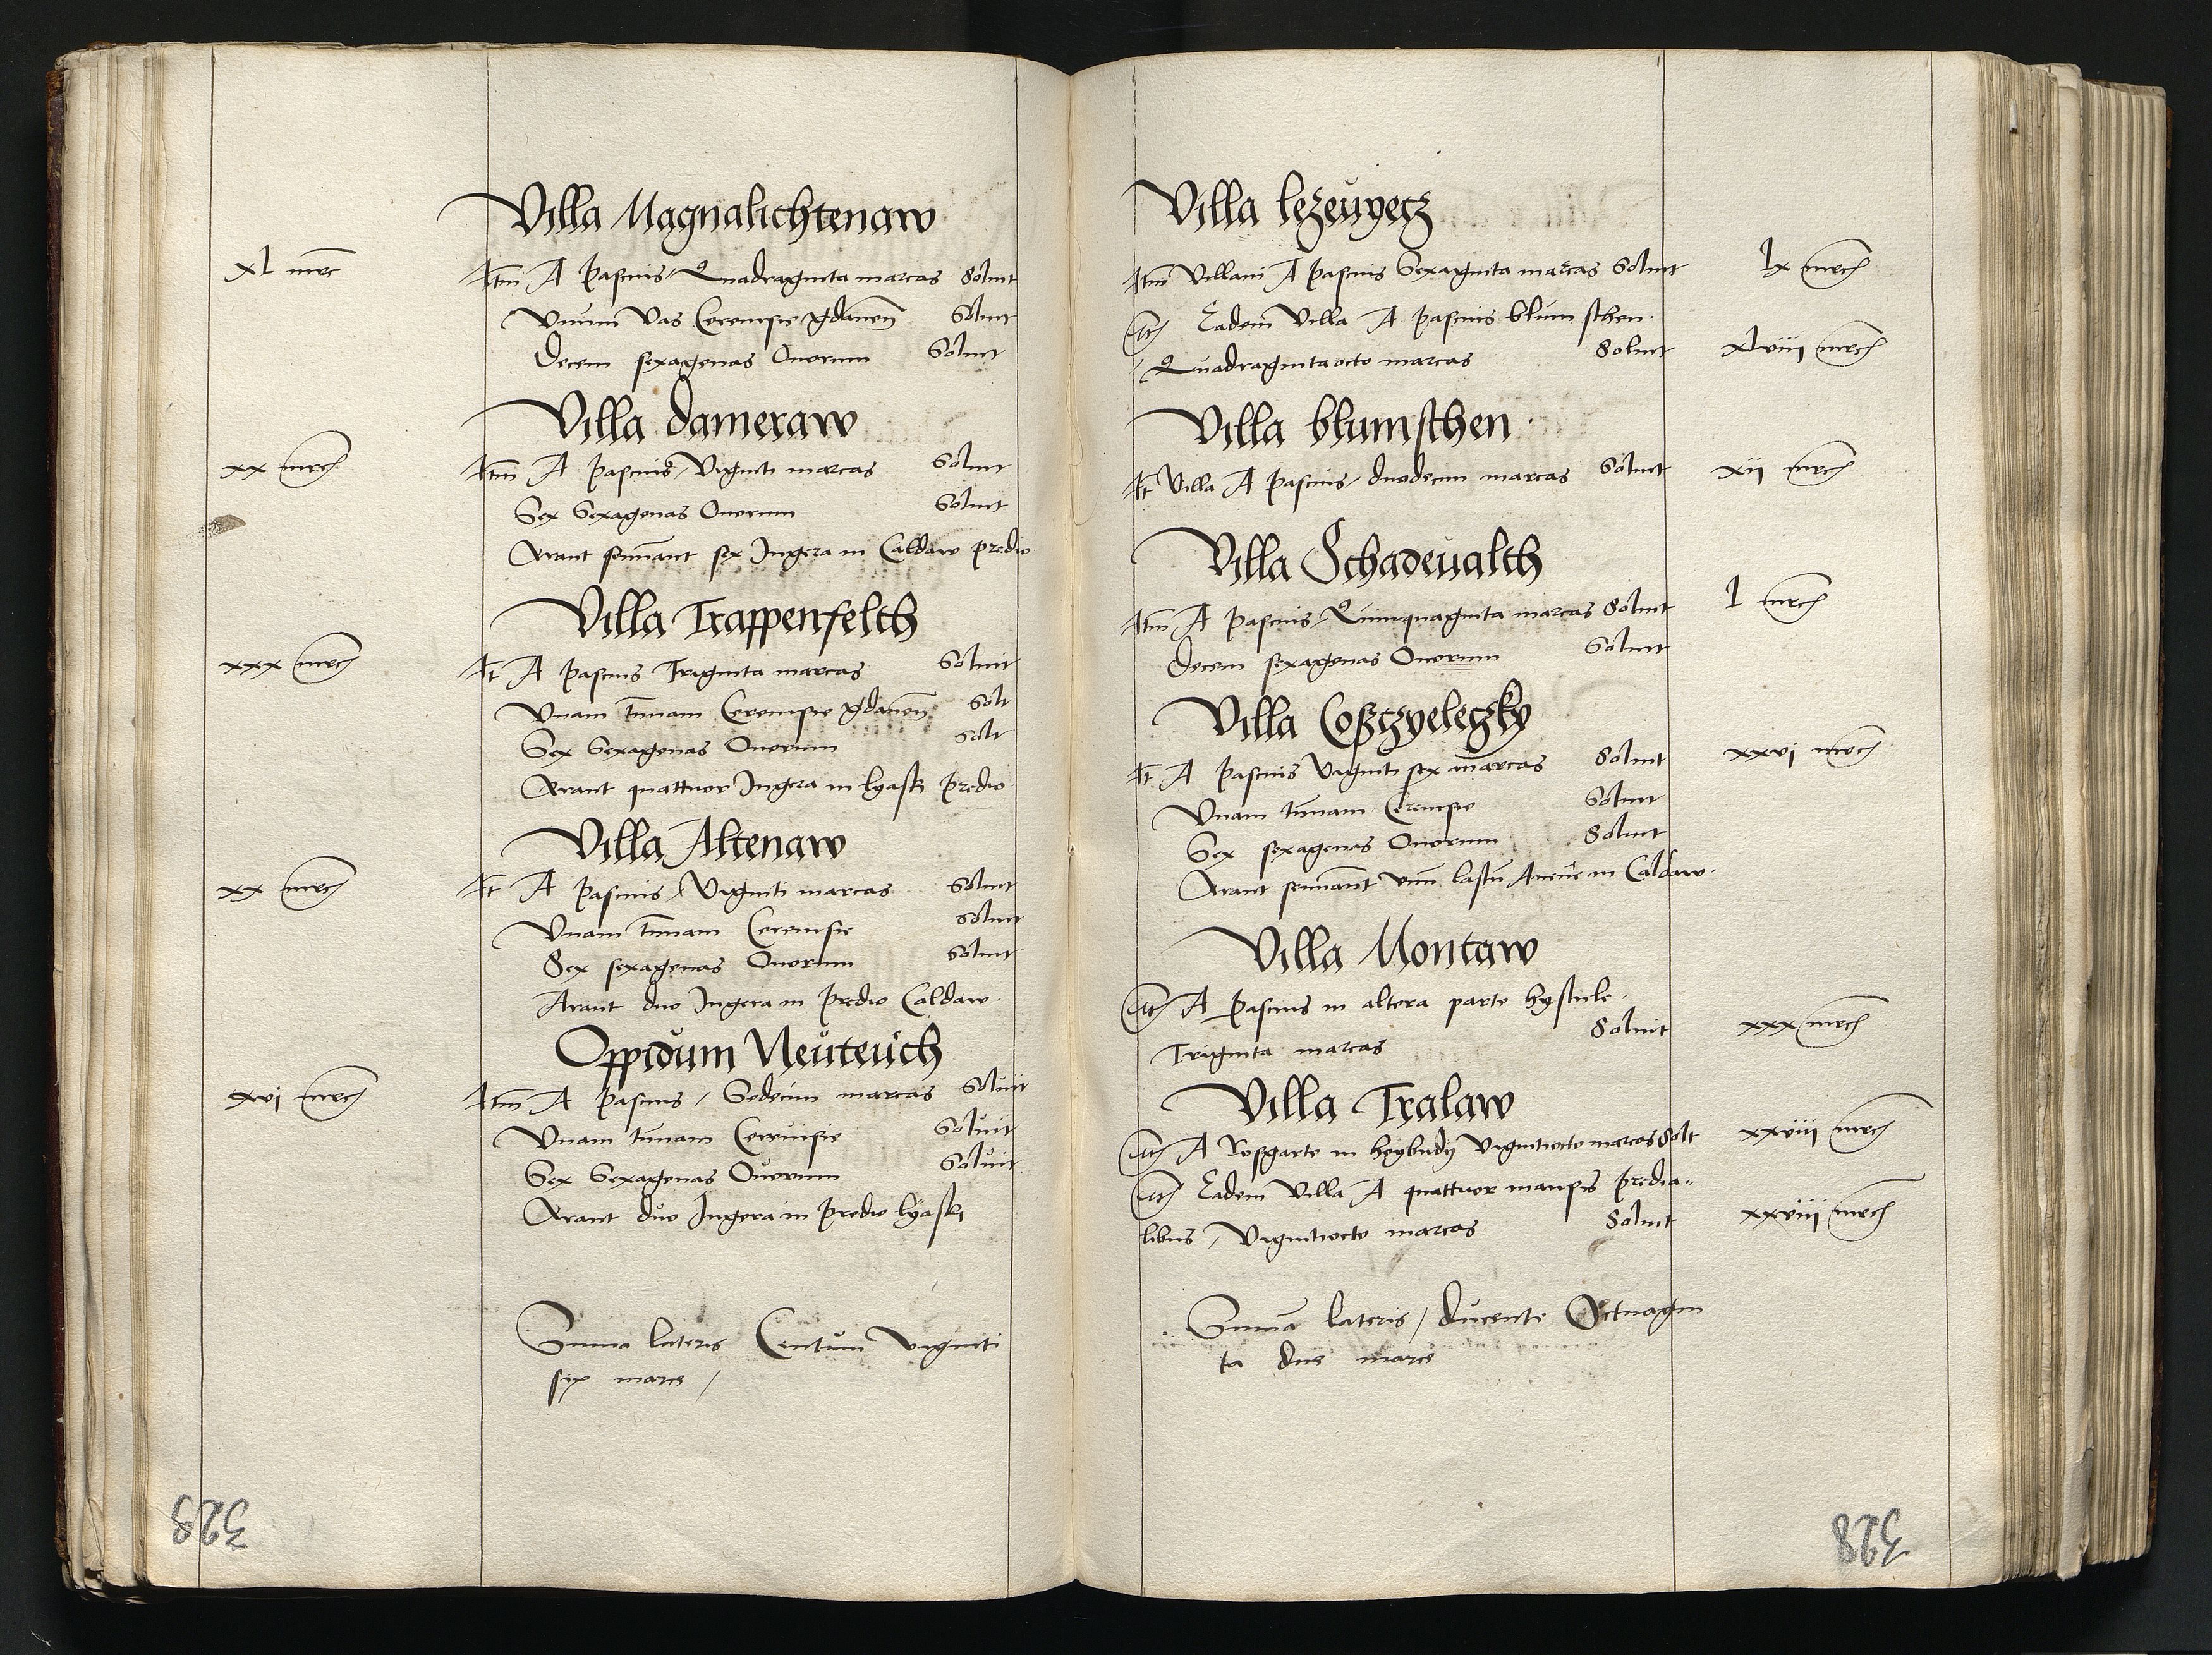 Villa Magnalichtenaw
xl mrc Itm A pascuis / Quadraginta marcas Solunt
Unum Vas Cerevisie gdanen Solunt
Decem sexagenas Ovorum Solunt
Villa dameraw
xx mrc Itm A pascuis / Viginti marcas Solunt
Sex Sexagenas Ovorum Solunt
Arant seminant sex Iugera in Caldaw predio
Villa Trappenfelth
xxx mrc It A pascuis Triginta marcas Solunt
Unam tunnam Cerevisie gdanen Solt
Sex Sexagenas Ovorum Solt
Arant quattuor Iugera in lyaski predio
Villa Altenaw
xx mrc It A pascuis / Viginti marcas Solunt
Unam tunnam Cerevisie Solunt
Sex sexagenas Ovorum Solunt
Arant duo Iugera in predio Caldaw.
Oppidum Neuteuch
xvi mrc Itm A pascuis / Sedecim marcas Soluit
Unam tunnam Cerevisie Soluit
Sex Sexagenas Ovorum Soluit
Arant duo Iugera in predio lyaski
Summa lateris Centum viginti
sex marce /
329
Villa lezeuyecz
Itm Villani A pascuis Sexaginta marcas Solunt lx mrc
Itm Eadem Villa A pascuis blumsthen.
Quadragintaocto marcas Solunt xlviii mrc
Villa blumsthen
It Villa A pascuis / duodecim marcas Solunt xii mrc
Villa Schadeualth
Itm A pascuis / Quinquaginta marcas Solunt l mrc
Decem sexagenas Ovorum Solunt
Villa Coßczyeleczky
It A pascuis Viginti sex marcas Solunt xxvi mrc
Unam tunnam Cervisie Solunt
Sex sexagenas Ovorum Solunt
Arant seminant unum lastum Avene in Caldaw.
Villa Montaw
Itm A pascuis in altera parte hystule.
Triginta marcas Soluit xxx mrc
Villa Tralaw
Itm A Roßgarte in heybudy Vigintiocto marcas Solt xxviii mrc
Itm Eadem Villa A quattuor mansis predia-
libus / Vigintiocto marcas Solunt xxviii mrc
Summa lateris / ducente Octuagin
ta due marce
328